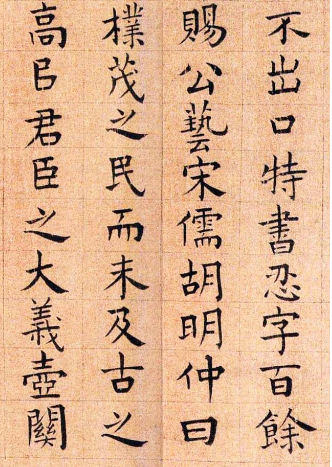 不出口特書忍字百餘
賜公藝宋儒胡明仲曰
樸茂之民而未及古之
高㠯君臣之大義壺關